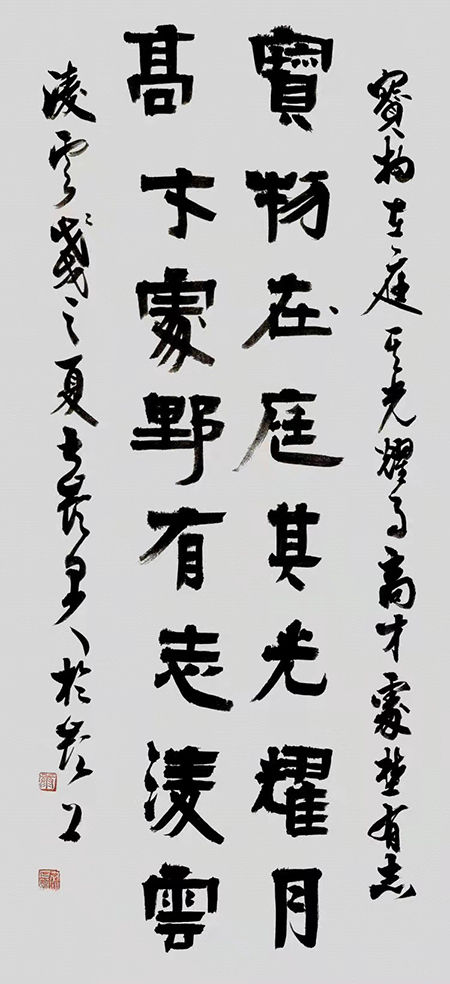 寳物在庭其光耀月高才處埜有志
寶物在庭其光耀月
髙才處野有志淩雲
淩雲之夏於